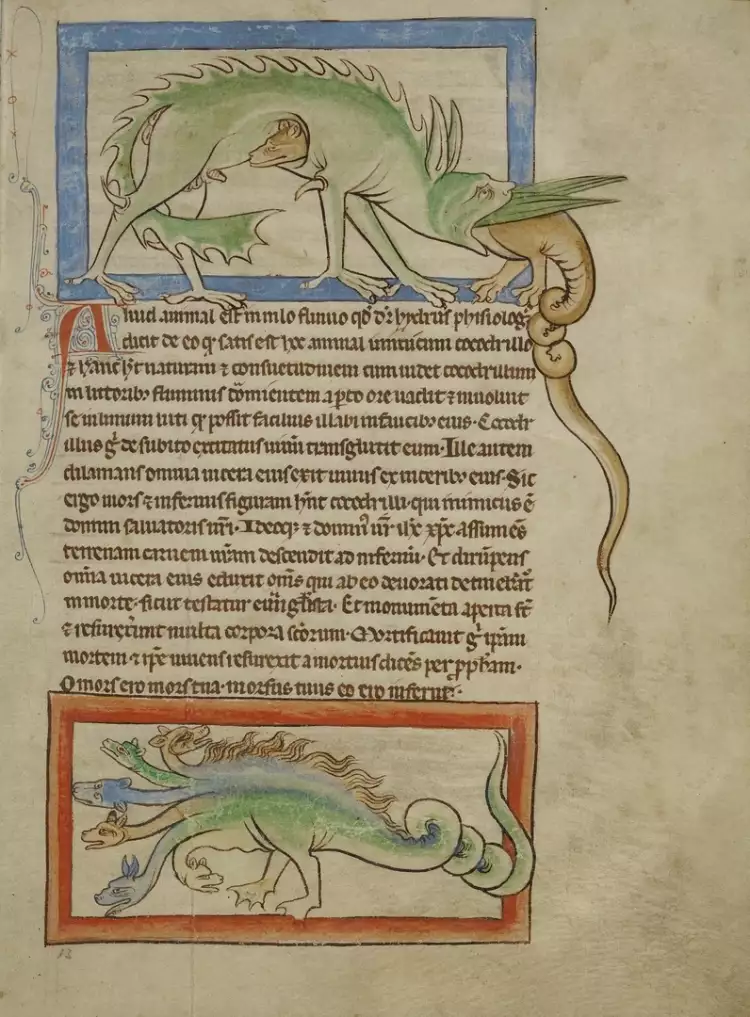 Aliud animal est in nilo fluuio qđ dr̄ hydrus phisiologꝰ
dicit de eo qr satis est hoc animal inimicum cocodrillo
⁊ hanc ħt naturam ⁊ consuetudinem cum uidet cocodrillum
in littoribꝫ fluminis dormientem aperto ore uadit ⁊ inuoluit
se in limum luti qͦ possit facilius illabi in faucibꝫ eius. Cocodr
illus gͦ de subito excitatus uiuum transglutit eum. Ille autem
dilanians omnia uicera eius exit uiuus ex uiceribꝫ eius. Sic
ergo mors ⁊ infernus figuram hn̄t cocodrilli. qui inimicus ē
domini saluatoris nr̄i. Ideoqꝫ ⁊ dominꝰ nr̄ ihc xp̄c assumēs
terrenam carnem nr̄am descendit ad infernū. Et dirūpens
om̄ia uicera eius eduxit om̄s qui ab eo deuorati detinebāt̄
in morte. sicut testatur euāgl̄ista. Et monum̄ta aperta st̄
⁊ resurrexerunt multa corpora scōrum. Mortificauit gͦ ip̄am
mortem. ⁊ ip̄e uiuens resurrexit a mortuis dicēs per ꝓpham.
O mors ero mors tua. morsus tuus ero inferne.